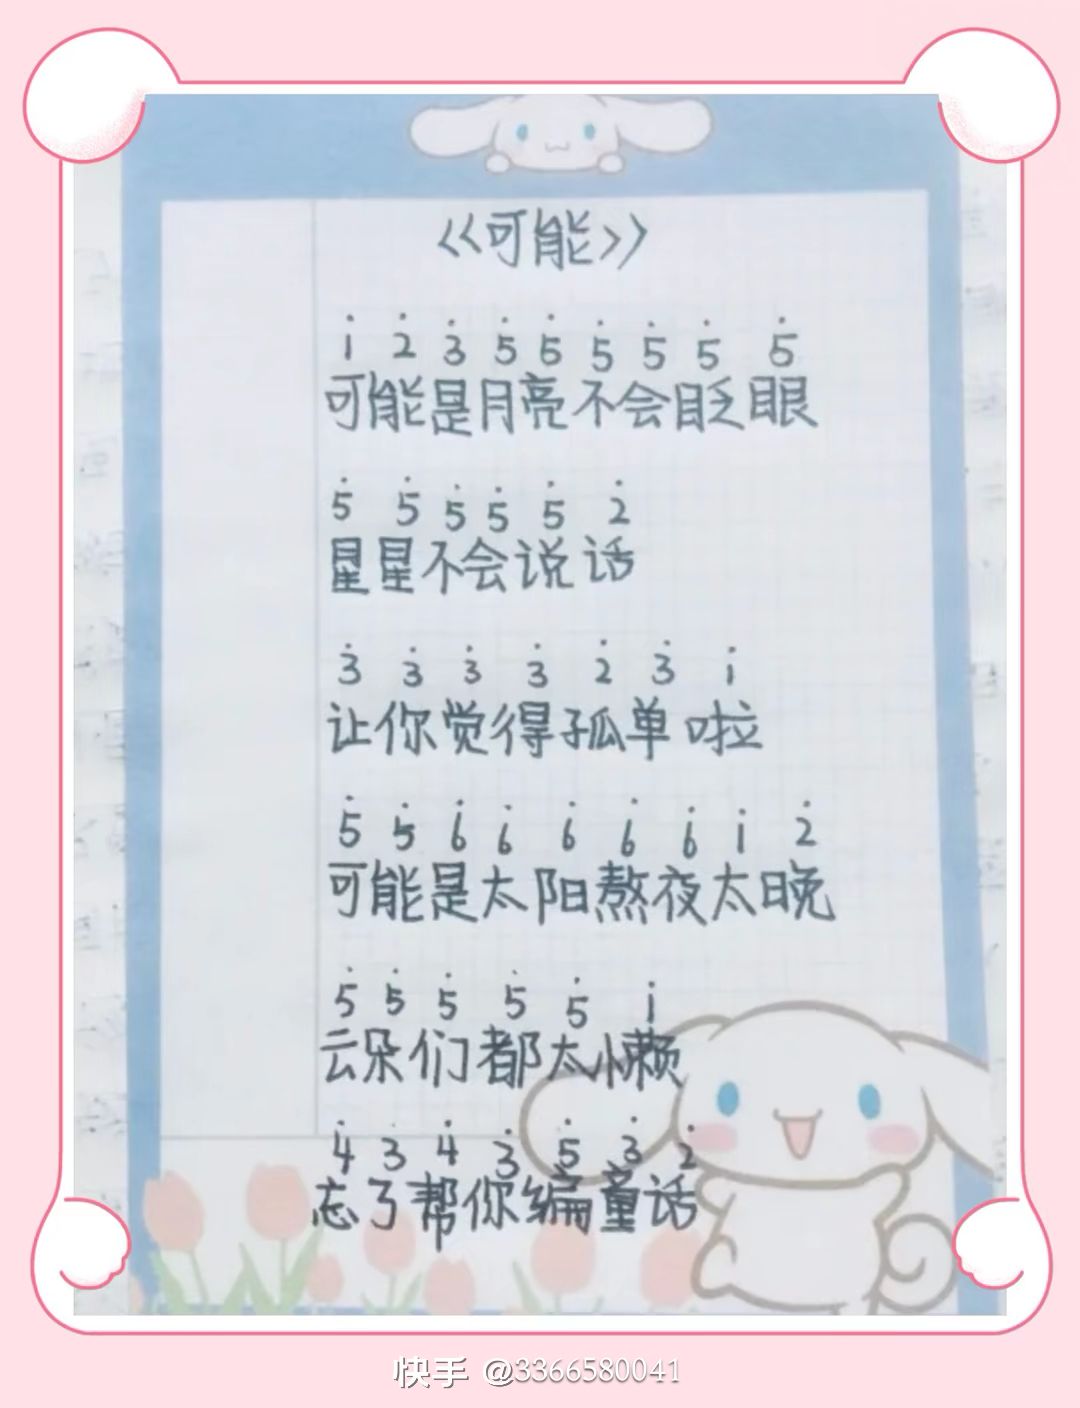 <<可能>>
i 2̇ 3̇ 5̇ 5̇ 5̇ 5̇ 5̇ 5̇
可能是月亮不会眨眼
5̇ 5̇ 5̇ 5̇ 5̇ 2̇
星星不会说话
3̇ 3̇ 3̇ 3̇ 2̇ 3̇ i
让你觉得孤单啦
5̇ 5̇ 6̇ 6̇ 6̇ 6̇ 6̇ i 2̇
可能是太阳熬夜太晚
5̇ 5̇ 5̇ 5̇ 5̇ i
云朵们都太懒
4̇ 3̇ 4̇ 3̇ 5̇ 3̇ 2̇
忘了帮你编童话
快手 @3366580041